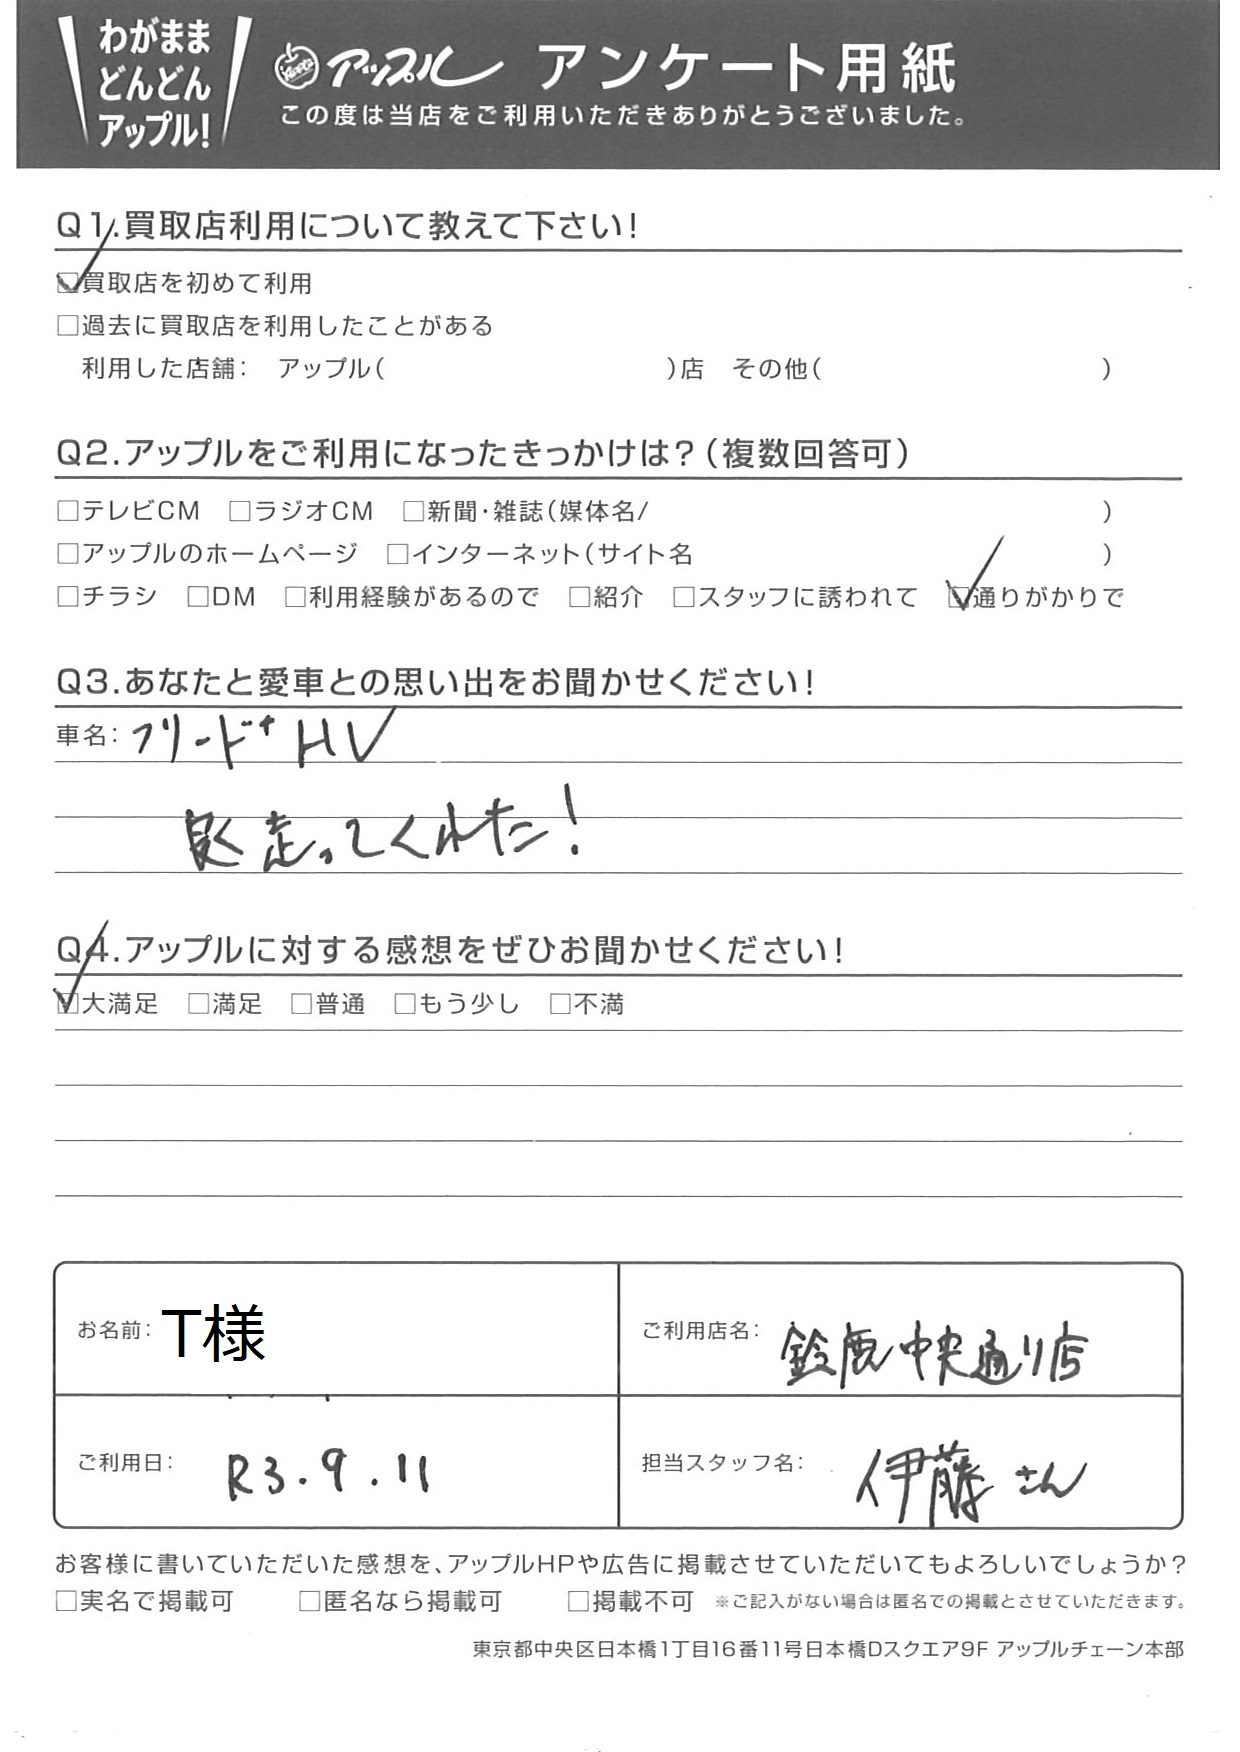 わがまま
どんどん
アップル!
Apple アップル アンケート用紙
この度は当店をご利用いただきありがとうございました。
Q1.買取店利用について教えて下さい!
☑買取店を初めて利用
□過去に買取店を利用したことがある
利用した店舗: アップル( )店 その他( )
Q2.アップルをご利用になったきっかけは?(複数回答可)
□テレビCM □ラジオCM □新聞・雑誌(媒体名/ )
□アップルのホームページ □インターネット(サイト名 )
□チラシ □DM □利用経験があるので □紹介 □スタッフに誘われて ☑通りがかりで
Q3.あなたと愛車との思い出をお聞かせください!
車名: フリード+ HV
良く走ってくれた!
Q4.アップルに対する感想をぜひお聞かせください!
☑大満足 □満足 □普通 □もう少し □不満
お名前: T様
ご利用店名: 鈴鹿中央通り店
ご利用日: R3.9.11
担当スタッフ名: 伊藤さん
お客様に書いていただいた感想を、アップルHPや広告に掲載させていただいてもよろしいでしょうか?
□実名で掲載可 □匿名なら掲載可 □掲載不可 ※ご記入がない場合は匿名での掲載とさせていただきます。
東京都中央区日本橋1丁目16番11号日本橋Dスクエア9F アップルチェーン本部